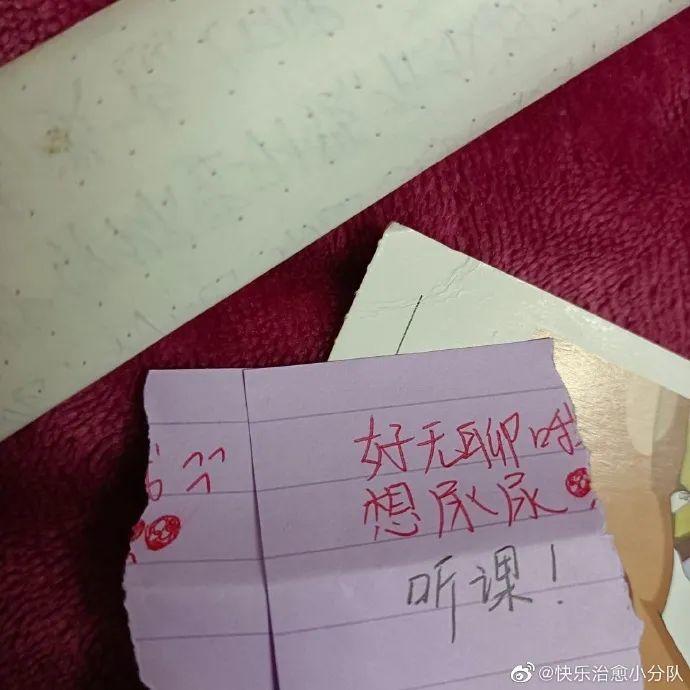 好无聊哦
想尿尿
听课！
@快乐治愈小分队